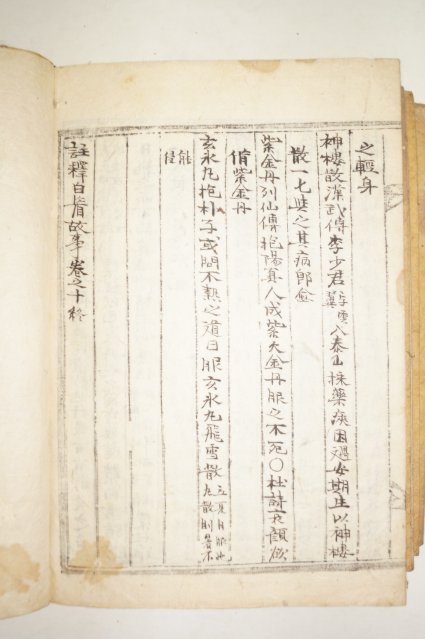 之輕身
神樓散漢武傳李少君字雲入泰山採藥疾困遇安期生以神樓
散一匕與之其病卽愈
紫金丹列仙傳抱陽眞人成紫大金丹服之不死〇杜詩衰顔欲
付紫金丹
玄氷丸抱朴子或問不熱之道曰服玄氷丸飛雪散
丸散則暑不
能侵
註釋白眉故事卷之十終